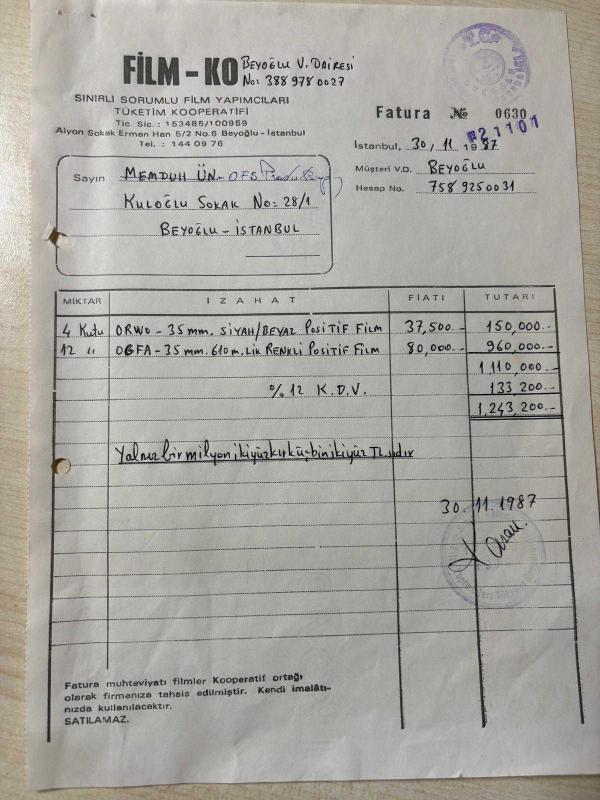 FİLM-KO
BEYOĞLU V. DAİRESİ
No: 388 978 0027
SINIRLI SORUMLU FİLM YAPIMCILARI
TÜKETİM KOOPERATİFİ
Tic. Sic. : 153485/100959
Alyon Sokak Erman Han 5/2 No.6 Beyoğlu - İstanbul
Tel. : 144 09 76
Fatura № 0630
21101
İstanbul, 30 / 11 1987
Müşteri V.D. BEYOĞLU
Hesap No. 758 925 0031
Sayın MEMDUH ÜN - OFS
KULOĞLU SOKAK No: 28/1
BEYOĞLU - İSTANBUL
MİKTAR İZAHAT FİATI TUTARI
4 Kutu ORWO - 35 mm. SİYAH/BEYAZ POSİTİF FİLM 37,500.- 150,000.-
12 " 35 mm. 610 m. Lik RENKLİ POSİTİF FİLM 80,000.- 960,000.-
1,110,000.-
% 12 K.D.V. 133,200.-
1,243,200.-
Yalnız bir milyon ikiyüzkırküçbinikiyüz TL.sıdır
30.11.1987
Fatura muhteviyatı filmler Kooperatif ortağı
olarak firmanıza tahsis edilmiştir. Kendi imalâtı-
nızda kullanılacaktır.
SATILAMAZ.